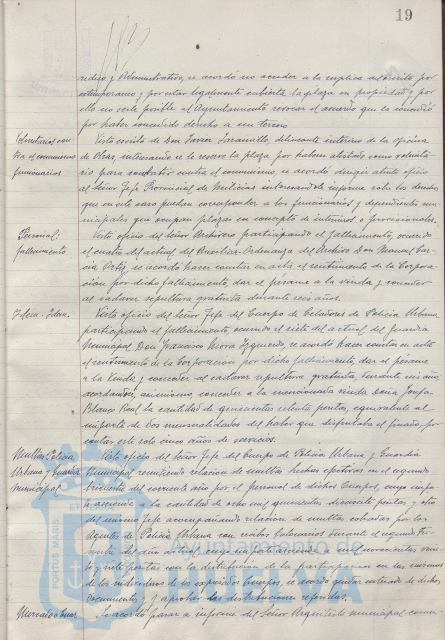 19
rídica y Administrativo, se acordó no acceder a la súplica del escrito, por
extemporanea y por estar legalmente cubierta la plaza en propiedad y por
ello no serle posible al Ayuntamiento revocar el acuerdo que la concedió
por haber concedido derecho a un tercero
Voluntarios con-
tra el comunismo
funcionarios
Visto escrito de Don Javier Jaramillo, delineante interino de la oficina
de Obras interesando se le reserve la plaza por haberse alistado como volunta-
rio para combatir contra el comunismo, se acordó dirigir atento oficio
al Señor Jefe Provincial de Milicias interesandole informe sobre los derechos
que en este caso puedan corresponder a los funcionarios y dependientes mu-
nicipales que ocupan plazas en concepto de interinos o provisionales.
Personal:
fallecimiento
Visto oficio del Señor Archivero participando el fallecimiento, ocurrido
el cuatro del actual del Auxiliar-Ordenanza del Archivo Don Manuel Gar-
cia Ortiz, se acordó hacer constar en acta el sentimiento de la Corpora-
ción por dicho fallecimiento, dar el pésame a la viuda, y conceder
al cadaver sepultura gratuita durante seis años.
Idem. Idem.
Visto oficio del Señor Jefe del Cuerpo de Celadores de Policía Urbana
participando el fallecimiento, ocurrido el siete del actual del Guardia
Municipal Don Francisco Mora Izquierdo, se acordó hacer constar en acta
el sentimiento de la Corporación por dicho fallecimiento, dar el pésame
a la Viuda, y conceder al cadaver sepultura gratuita, durante seis años,
acordandose, asimismo, conceder a la mencionada viuda Doña Josefa
Blanco Real la cantidad de quinientas setenta pesetas, equivalente al
importe de dos mensualidades del haber que disfrutaba el finado, por
contar este solo cinco años de servicios.
Multas Policía
Urbana y Guardia
municipal
Visto oficio del Señor Jefe del Cuerpo de Policía Urbana y Guardia
Municipal remitiendo relación de multas hechas efectivas en el segundo
trimestre del corriente año por el personal de dichos Cuerpos, cuyo impor-
te asciende a la cantidad de ocho mil quinientas diecisiete pesetas, y otro
del mismo Jefe acompañando relación de multas cobradas por los
Agentes de Policía Urbana con recibos talonarios durante el segundo tri-
mestre del año actual, cuyo importe asciende a mil novecientas vein-
te y siete pesetas con la distribución de la participación en las mismas
de los individuos de los expresados Cuerpos, se acordó quedar enterado de dichos
documentos y aprobar las distribuciones referidas.
Se acordó pasar a informe del Señor Arquitecto municipal
PORTUS MAGNUS